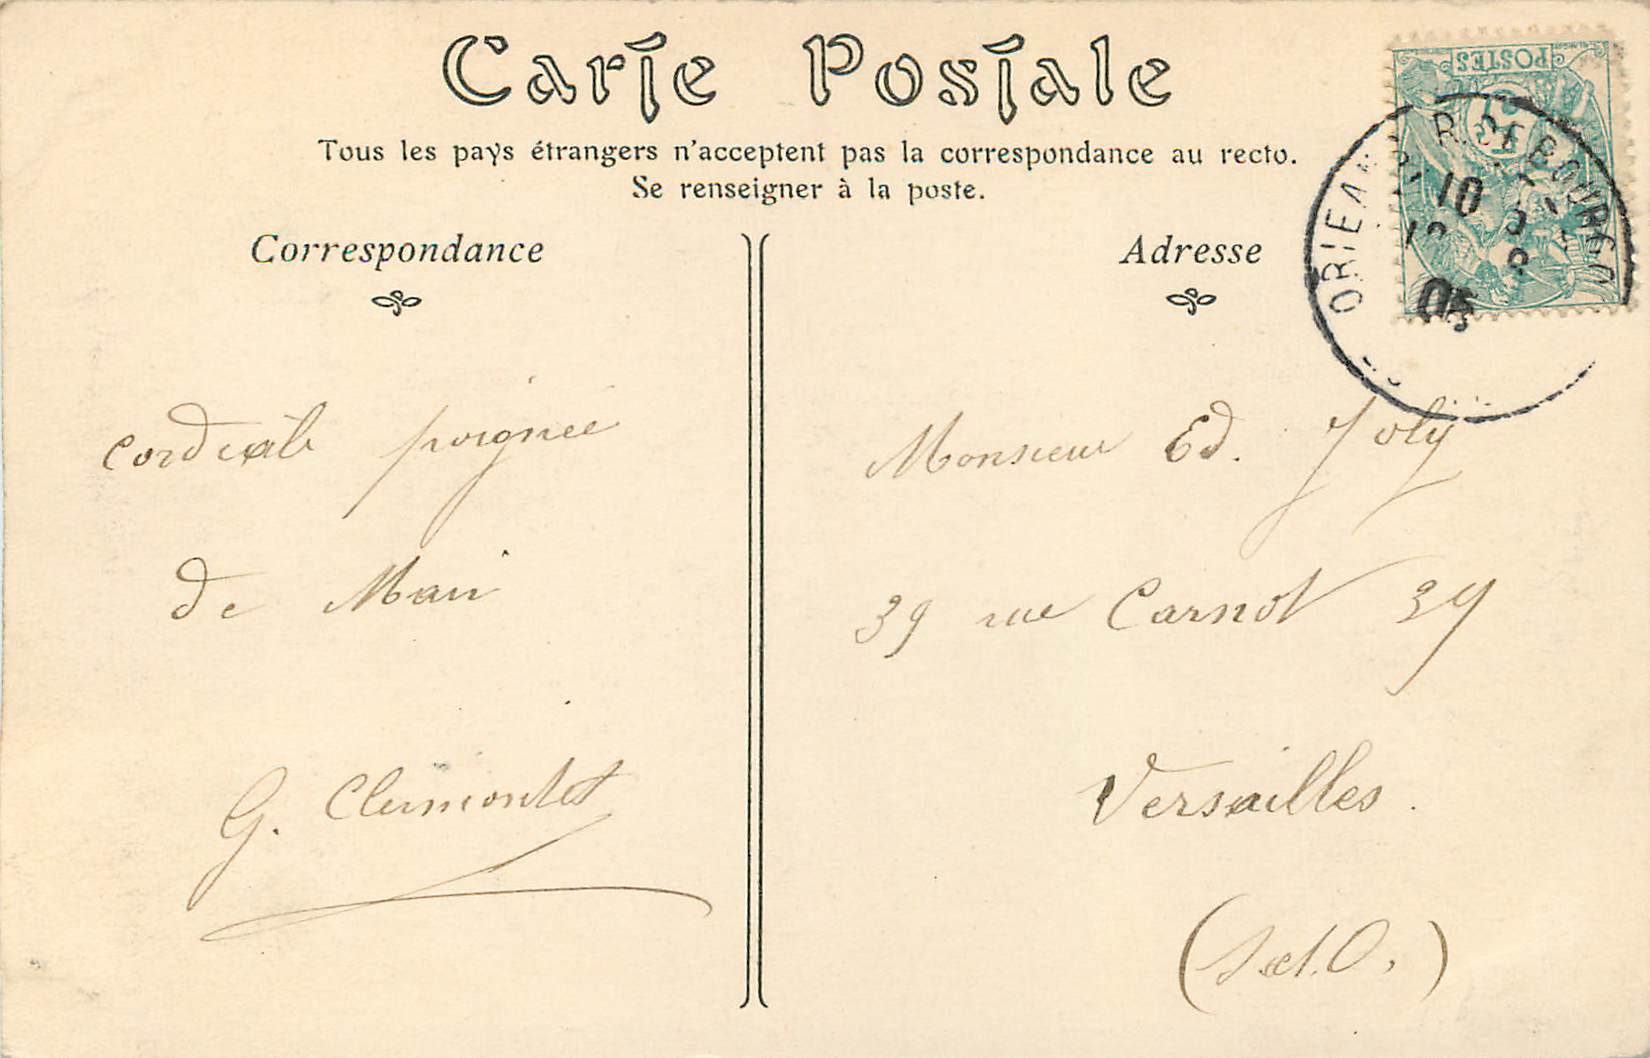 Carte Postale
Tous les pays étrangers n'acceptent pas la correspondance au recto.
Se renseigner à la poste.
Correspondance
Adresse
POSTES
5
ORLEANS R. DE BOURGO
10
05
cordiale poignée
de Main
G. Clermontet
Monsieur Ed. Joly
39 rue Carnot 39
Versailles.
(S et O.)